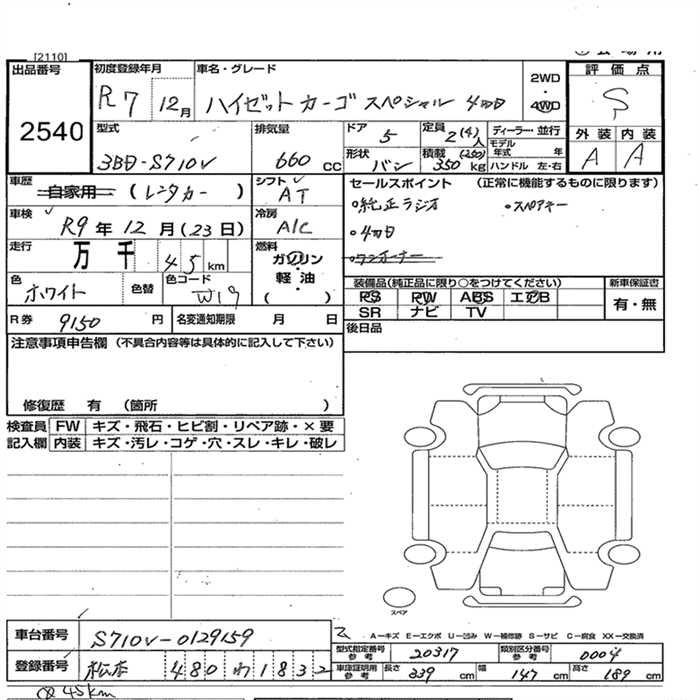 [2110]
出品番号
2540
初度登録年月
R7 12月
車名・グレード
ハイゼットカーゴ スペシャル 4WD
2WD
・
4WD
評価点
S
外装 内装
A A
型式
3BD-S710V
排気量
660 cc
ドア 5
定員 2(4)人
ディーラー・並行
形状 バン
積載 (250) 350 kg
モデル年式 年
ハンドル 左・右
車歴
自家用 (レンタカー)
シフト
AT
車検
R9年12月(23日)
冷房
A/C
走行
万千 45 km
燃料
ガソリン
・
軽油
( )
色
ホワイト
色替
色コード
W19
セールスポイント (正常に機能するものに限ります)
・純正ラジオ ・スペアキー
・4WD
・ワンオーナー
装備品(純正品に限り○をつけてください)
PS PW ABS エアB
SR ナビ TV
新車保証書
有・無
R券 9150 円
名変通知期限 月 日
後日品
注意事項申告欄 (不具合内容等は具体的に記入して下さい)
修復歴 有 (箇所 )
検査員記入欄
FW キズ・飛石・ヒビ割・リペア跡・×要
内装 キズ・汚レ・コゲ・穴・スレ・キレ・破レ
スペア
車台番号 S710V-0129159
A−キズ E−エクボ U−凹み W−補修跡 S−サビ C−腐食 XX−交換済
型式指定番号 参考 20317
類別区分番号 参考 0004
登録番号 松本 480 わ 1832
車庫証明用 参考 長さ 339 cm 幅 147 cm 高さ 189 cm
45km